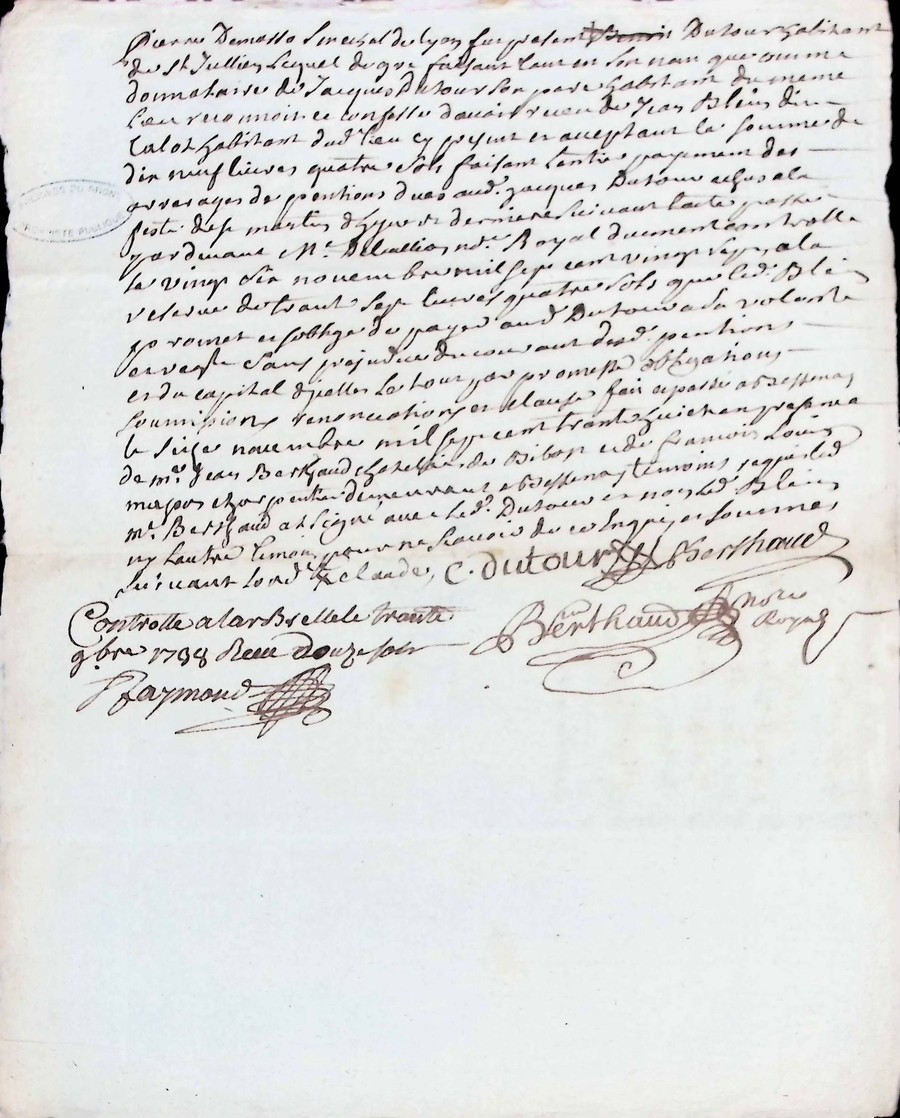 pierre Demasso Senechal de lyon fut present ~~Benoit~~ Dutour habitant
de St Jullien Lequel de gre faisant tant en son nom que comme
donnataire de Jacques Dutour son pere habitant du meme
Lieu reconnoit et confesse d'avoir receu de Jean Blein dit
habitant dud. lieu cy present et acceptant la somme de
dix neuf livres quatre sols faisant l'entier payement des
arrerages de pentions dues aud. Jacques Dutour echus a la
feste de st martin d'hyver derniere suivant l'acte passé
pardevant Me. no.re Royal duement controllé
le vingt six novembre mil sept cent vingt sept, a la
reserve de trante sept livres quatre sols que led. Blein
promet et s'oblige de payer aud. Dutour a sa volonté
et reqte sans prejudice du courant desd. pentions
et du capital d'icelles le tout par promesse obligations
soumissions renonciations et clauses fait et passé a Bessenay
le seize novembre mil sept cent trante huict en presence
de mr. Jean Berthaud chatelain de Bibost et de francois
charpentier demeurant a Bessenay temoins requis led.
mr. Berthaud a signé avec led. Dutour et non led. Blein
ny l'autre temoin pour ne scavoir de ce enquis et sommes
suivant l'ord. claude, C. Dutour JBerthaud
Controllé a larbrelle le trante
9.bre 1738 Receu Douze sols
Raymond
Berthaud nore
Royal
PUBLIQUE